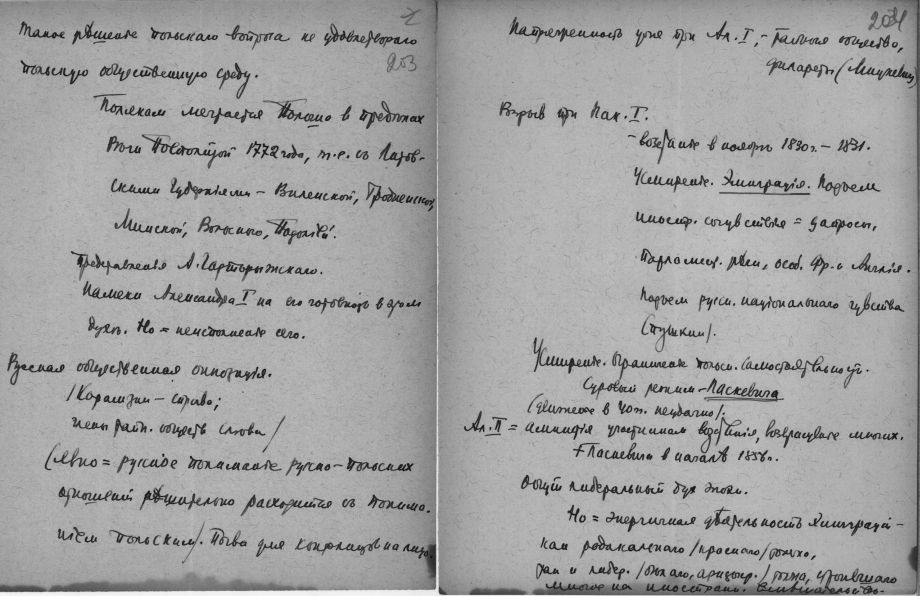 203
Такое рѣшенiе польскаго вопроса не удовлетворяло
польскую общественную среду.
Полякам мечтается Польша в предѣлах
Рѣчи Посполитой 1772 года, т.е. съ Литов-
скими Губернiями – Виленской, Гродненской,
Минской, Волынской, Подолiей.
Представленiя А. Чарторыжскаго.
Намеки Александра I на его готовность в этом
духѣ. Но = неисполненiе сего.
Русская общественная оппозицiя.
/Карамзин –
члены тайн. обществ слѣва/
(Явно = русское пониманiе русско-польских
отношенiй рѣшительно расходится съ понима-
нiем польским/. Почва для конфликтов на лицо.
204
Напряженность уже при Ал. I, – тайныя общества,
филареты (Мицкевич)
Взрыв при Ник. I.
– возстанiе в ноябрѣ 1830 г. – 1831.
Усмиренiе. Эмиграцiя. Подъем
иностр. сочувствiя = запросы,
Парламент. рѣчи, особ. Фр. и Англiя.
Подъем русск. нацiональнаго чувства
(Пушкин).
Усмиренiе. Ограниченiе польск. самостоятельности.
Суровый режим – Паскевича
(движенiе в 40 г. неудачно/.
Ал. II = амнистiя участникам возстанiя, возвращенiе многих.
† Паскевича в началѣ 1856 г.
Общiй либеральный дух эпохи.
Но = энергичная дѣятельность Эмиграцiи –
как радикальнаго /краснаго/ толка,
так и либер. /бѣлаго, аристокр./ толка,
многое на иностран. вмѣшательство.